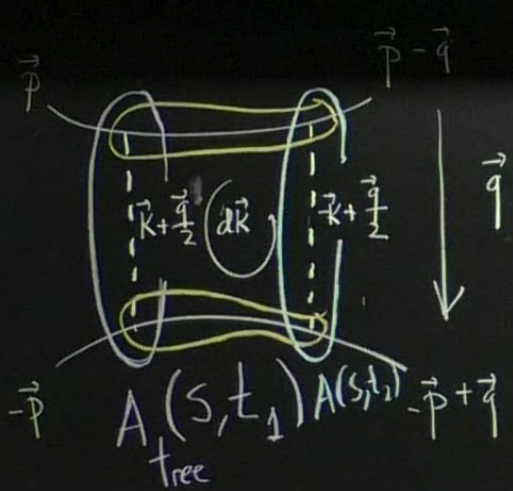 $\vec{p}$
$\vec{p}-\vec{q}$
$\vec{k}+\frac{\vec{q}}{2}$ $d\vec{k}$ $-\vec{k}+\frac{\vec{q}}{2}$
$\vec{q}$
$-\vec{p}$ $A_{tree}(s,t_1)$ $A(s,t_2)$ $-\vec{p}+\vec{q}$